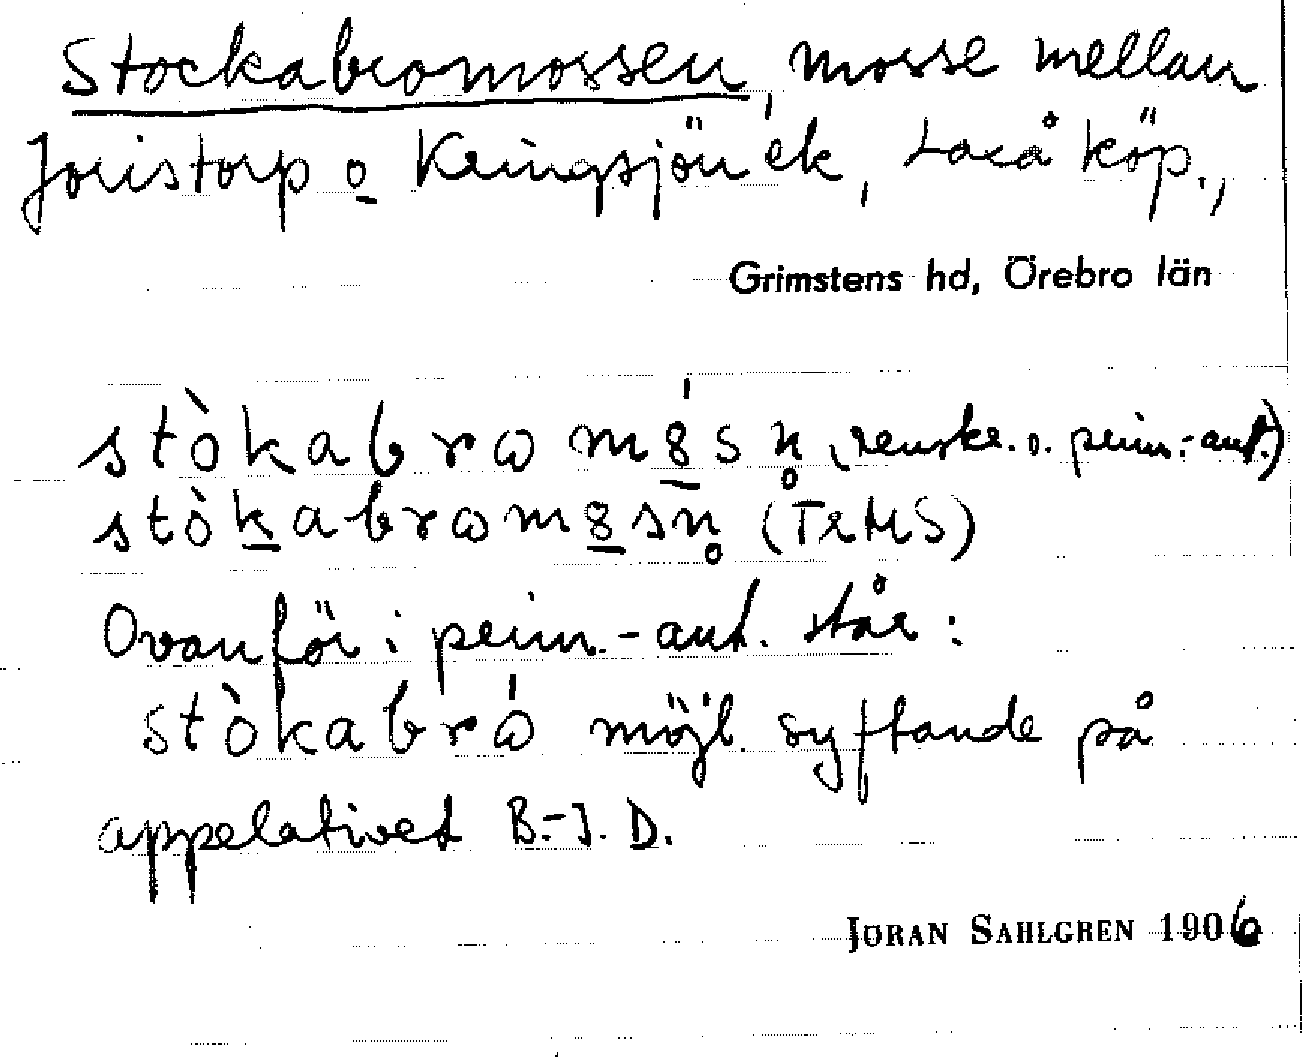 Stockabromossen, mosse mellan
Joristorp o Kringsjön ek, Laxå köp.,
Grimstens hd, Örebro län
stòkabrωm8́sn̥ (renskr. o. prim.-ant.)
stòkabrωm8sn̥ (TRMS)
Ovanför i prim.-ant. står:
stòkabrώ möjl. syftande på
appelativet B.-I. D.
JÖRAN SAHLGREN 1906